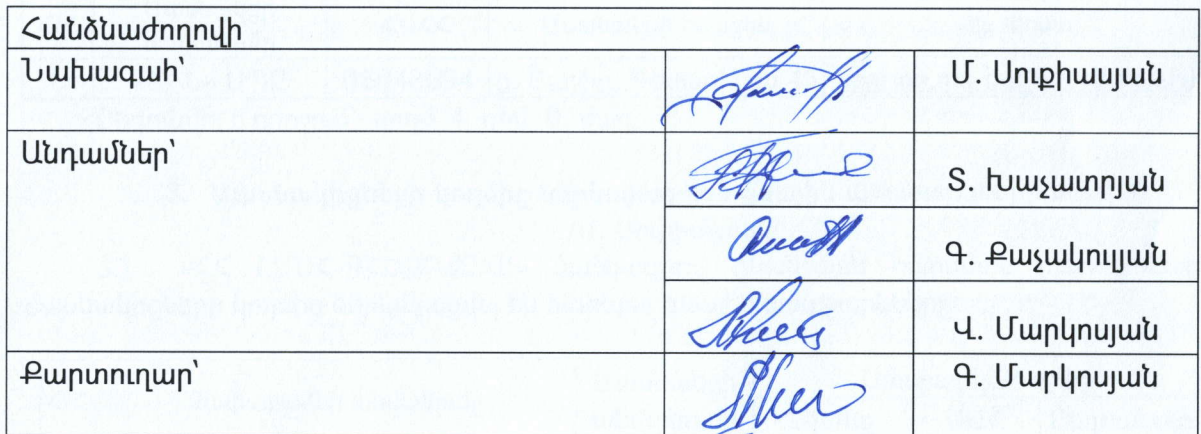 Հանձնաժողովի
Նախագահ՝
Մ. Սուքիասյան
Անդամներ՝
Տ. Խաչատրյան
Գ. Քաչակուլյան
Վ. Մարկոսյան
Քարտուղար՝
Գ. Մարկոսյան